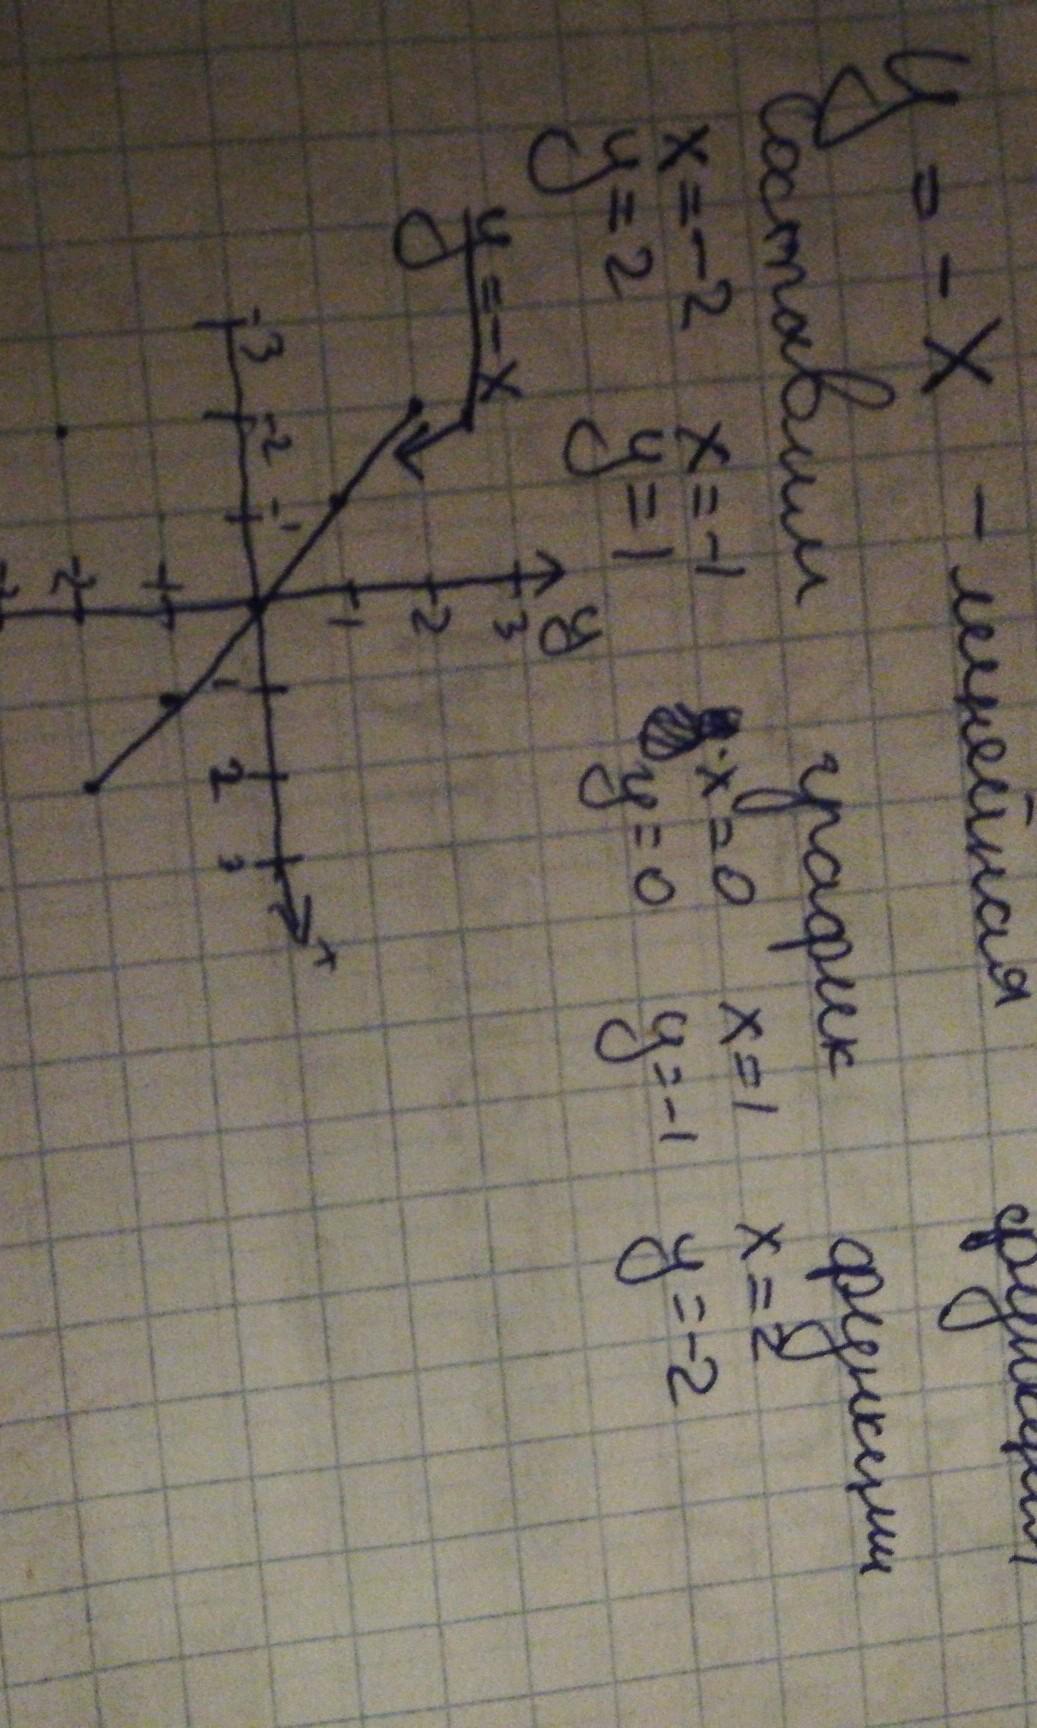 y = - x - линейная функция
Составим график функции
x = -2 x = -1 x = 0 x = 1 x = 2
y = 2 y = 1 y = 0 y = -1 y = -2
y = - x
y
3
2
1
-3 -2 -1 1 2 3 x
-1
-2